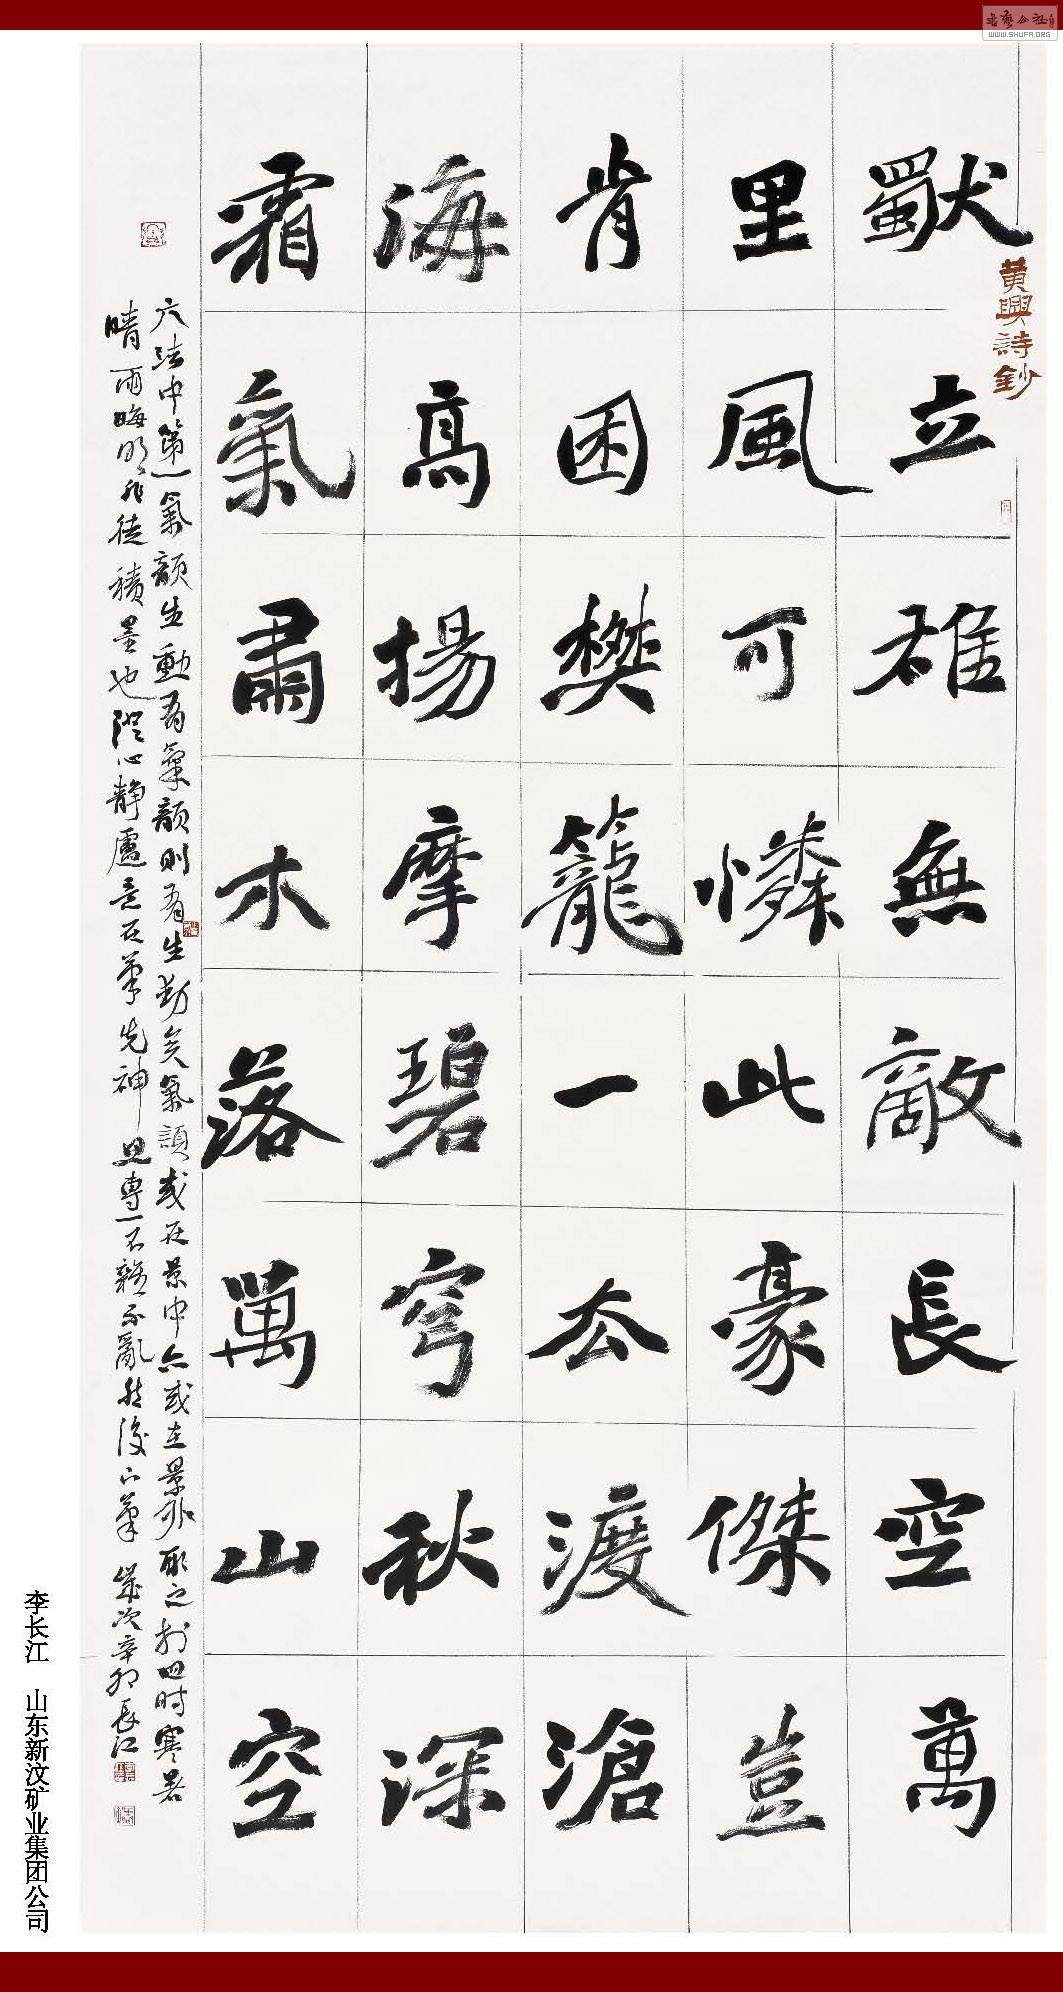 書藝公社
WWW.SHUFA.ORG
黃興詩鈔
獨立雄無敵長空萬
里風可憐此豪傑豈
肯困樊籠一去渡滄
海高揚摩碧穹秋深
霜氣肅木落萬山空
六法中第一氣韻生動有氣韻則有生動矣氣韻或在景中亦或在景外取之於四時寒暑
晴雨晦明非徒積墨也澄心靜慮意在筆先神思專一不雜不亂然後下筆 歲次辛卯長江
李长江 山东新汶矿业集团公司